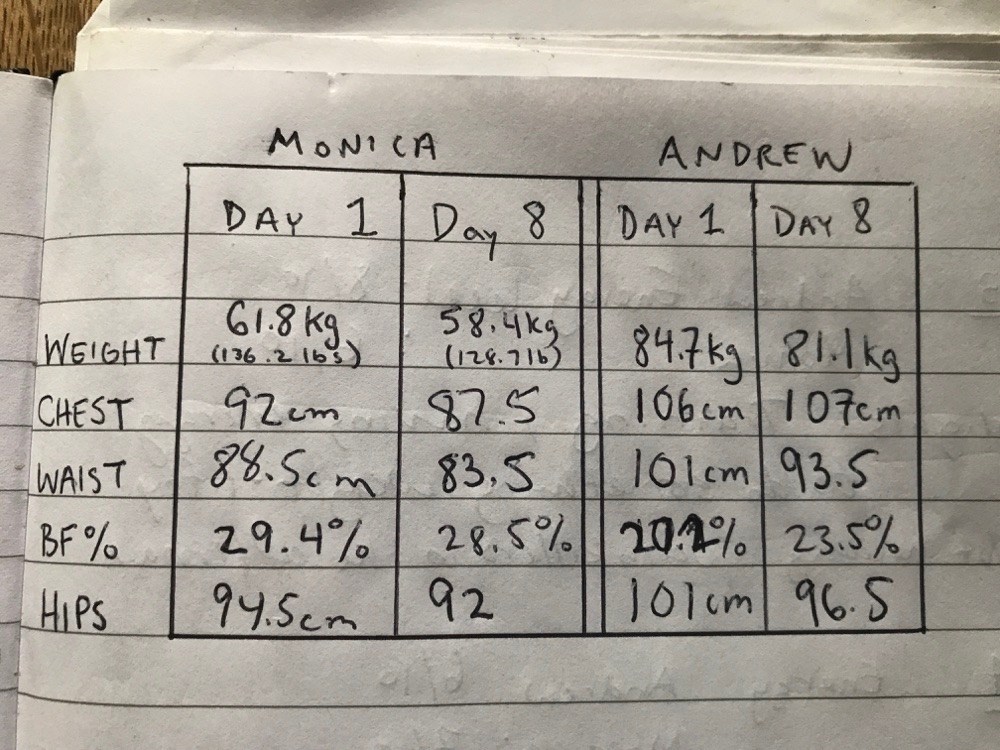 MONICA ANDREW
DAY 1 Day 8 DAY 1 DAY 8
61.8kg 58.4kg
WEIGHT (136.2 lbs) (128.7lb) 84.7kg 81.1kg
CHEST 92cm 87.5 106cm 107cm
WAIST 88.5cm 83.5 101cm 93.5
BF% 29.4% 28.5% 23.5%
HIPS 94.5cm 92 101cm 96.5